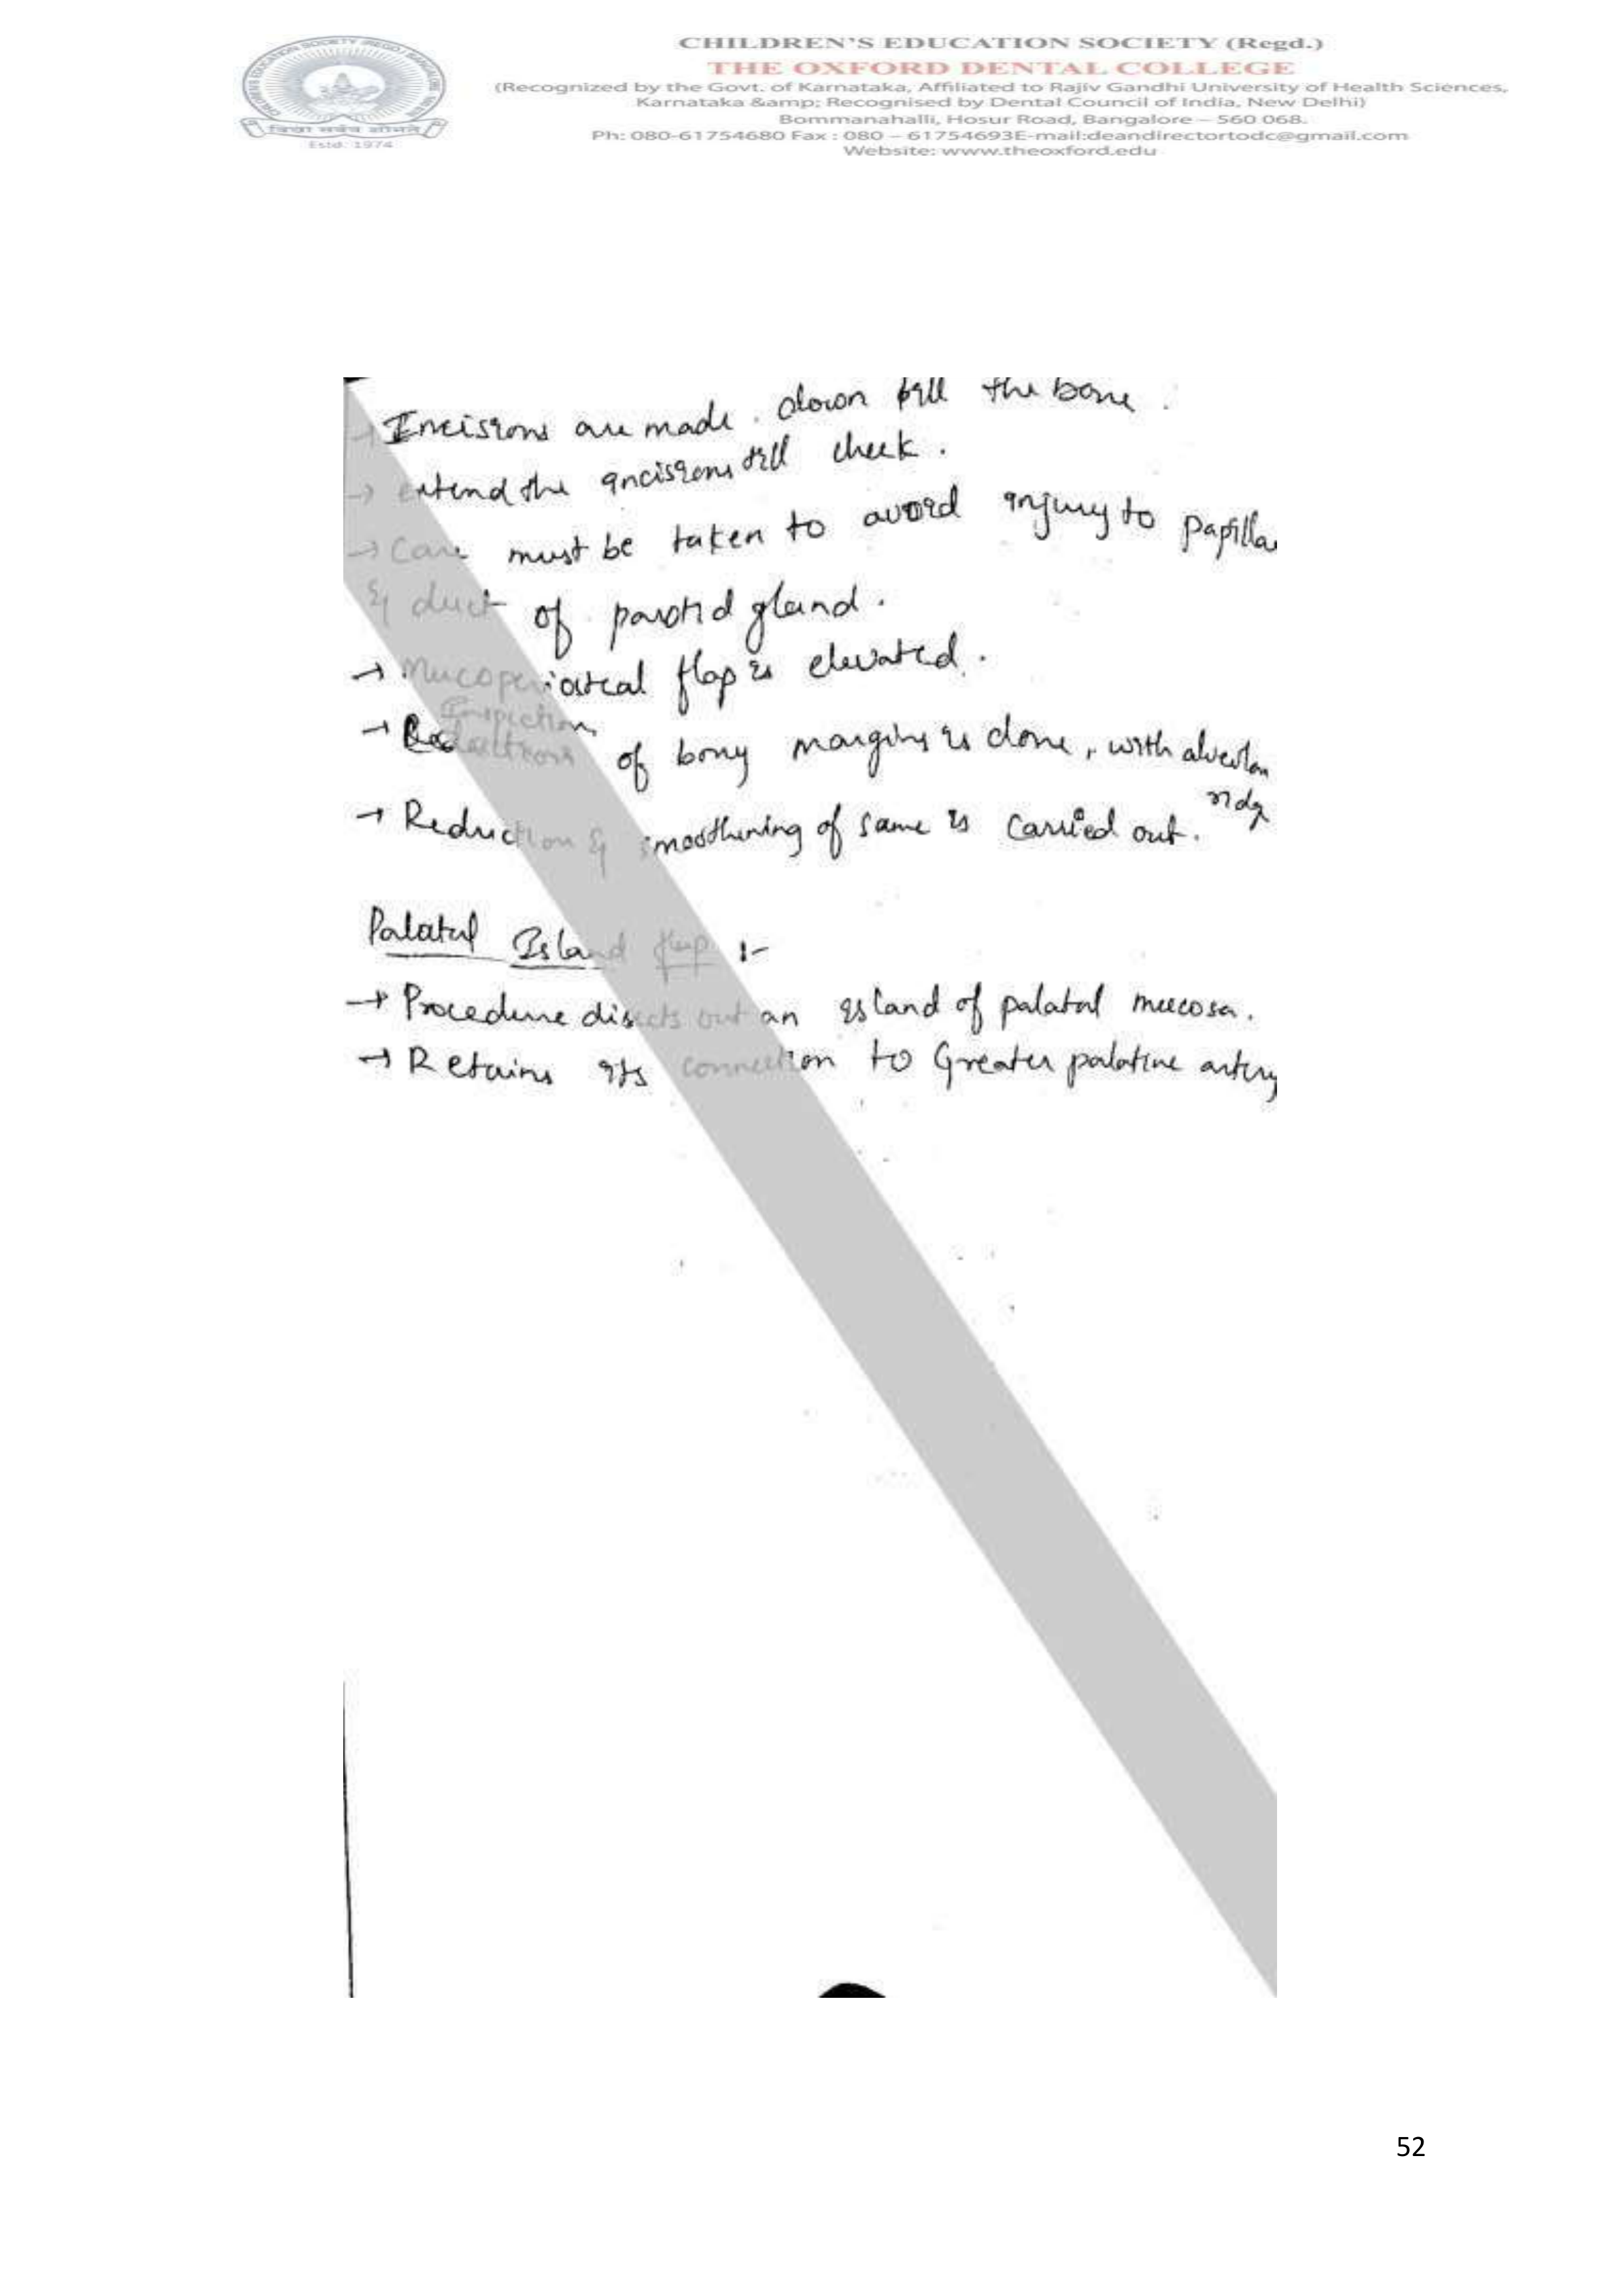 CHILDREN'S EDUCATION SOCIETY (Regd.)
THE OXFORD DENTAL COLLEGE
(Recognized by the Govt. of Karnataka, Affiliated to Rajiv Gandhi University of Health Sciences,
Karnataka &amp; Recognised by Dental Council of India, New Delhi)
Bommanahalli, Hosur Road, Bangalore – 560 068.
Ph: 080-61754680 Fax : 080 – 61754693E-mail:deandirectortodc@gmail.com
Website: www.theoxford.edu
Estd: 1974
→ Incisions are made. down till the bone.
→ extend the incisions till cheek.
→ Care must be taken to avoid injury to papilla
& duct of parotid gland.
→ Mucoperiosteal flap is elevated.
Inspection
→ of bony margins is done, with alveolar
ridge
→ Reduction & smoothening of same is carried out.
Palatal Island flap :-
→ Procedure disects out an island of palatal mucosa.
→ Retains its connection to Greater palatine artery
52